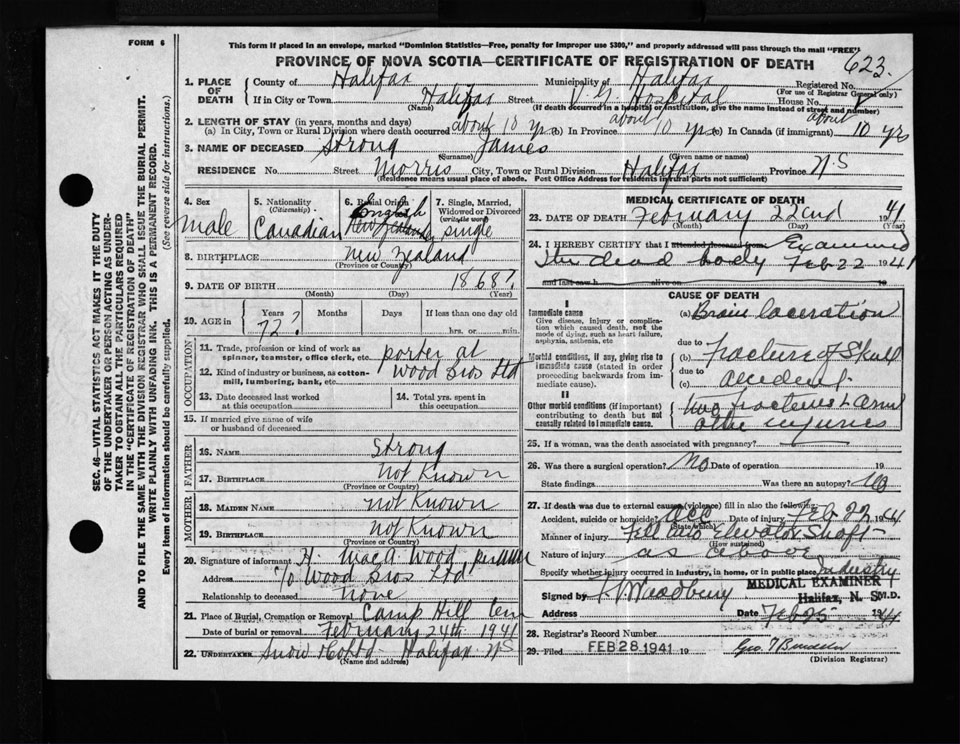 FORM 6
This form if placed in an envelope, marked "Dominion Statistics—Free, penalty for improper use $300," and properly addressed will pass through the mail "FREE"
PROVINCE OF NOVA SCOTIA—CERTIFICATE OF REGISTRATION OF DEATH
623
1. PLACE OF DEATH
County of Halifax Municipality of Halifax Registered No.
(For use of Registrar General only)
If in City or Town Halifax Street V.G. Hospital House No.
(Name) (If death occurred in a hospital or institution, give the name instead of street and number)
2. LENGTH OF STAY (in years, months and days)
(a) In City, Town or Rural Division where death occurred about 10 yrs (b) In Province about 10 yrs (c) In Canada (if immigrant) about 10 yrs
3. NAME OF DECEASED Strong James
(Surname) (Given name or names)
RESIDENCE No. Street Morris City, Town or Rural Division Halifax Province N S
(Residence means usual place of abode. Post Office Address for residents in rural parts not sufficient)
4. Sex Male
5. Nationality (Citizenship) Canadian
6. Racial Origin English New Zealander
7. Single, Married, Widowed or Divorced (write the word) single
8. BIRTHPLACE New Zealand
(Province or Country)
9. DATE OF BIRTH 1868?
(Month) (Day) (Year)
10. AGE in Years Months Days If less than one day old
72? hrs. or min.
OCCUPATION
11. Trade, profession or kind of work as spinner, teamster, office clerk, etc. porter at
12. Kind of industry or business, as cotton-mill, lumbering, bank, etc. Wood Bros Ltd
13. Date deceased last worked at this occupation
14. Total yrs. spent in this occupation
15. If married give name of wife or husband of deceased
FATHER
16. NAME Strong
17. BIRTHPLACE Not Known
(Province or Country)
MOTHER
18. MAIDEN NAME Not Known
19. BIRTHPLACE Not Known
(Province or Country)
20. Signature of informant H. Wood
Address c/o Wood Bros Ltd
Relationship to deceased None
21. Place of Burial, Cremation or Removal Camp Hill Cem
Date of burial or removal February 24th 1941
22. UNDERTAKER Snow & Co Ltd Halifax N S
(Name and address)
MEDICAL CERTIFICATE OF DEATH
23. DATE OF DEATH February 22nd 1941
(Month) (Day) (Year)
24. I HEREBY CERTIFY that I attended deceased from Examined
the dead body Feb 22 1941
and last saw h alive on 19
CAUSE OF DEATH
I
Immediate cause
Give disease, injury or complication which caused death, not the mode of dying, such as heart failure, asphyxia, asthenia, etc
(a) Brain laceration
due to
Morbid conditions, if any, giving rise to immediate cause (stated in order proceeding backwards from immediate cause).
(b) Fracture of Skull
due to
(c) accident
II
Other morbid conditions (if important) contributing to death but not causally related to immediate cause.
two fractures L arm
other injuries
25. If a woman, was the death associated with pregnancy?
26. Was there a surgical operation? No Date of operation 19
State findings Was there an autopsy? No
27. If death was due to external causes (violence) fill in also the following:
Accident, suicide or homicide? Acc Date of injury Feb 22 1941
(State which)
Manner of injury Fell into Elevator Shaft
(How sustained)
Nature of injury as above
Specify whether injury occurred in industry, in home, or in public place Industry
Signed by M.D.
MEDICAL EXAMINER
Halifax, N. S.
Address Date Feb 25 1941
28. Registrar's Record Number
29. Filed FEB 28 1941 19
(Division Registrar)
SEC. 46—VITAL STATISTICS ACT MAKES IT THE DUTY OF THE UNDERTAKER OR PERSON ACTING AS UNDERTAKER TO OBTAIN ALL THE PARTICULARS REQUIRED IN THE "CERTIFICATE OF REGISTRATION OF DEATH" AND TO FILE THE SAME WITH THE DIVISION REGISTRAR WHO SHALL ISSUE THE BURIAL PERMIT.
WRITE PLAINLY WITH UNFADING INK. THIS IS A PERMANENT RECORD.
Every item of information should be carefully supplied. (See reverse side for instructions.)